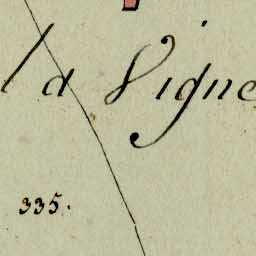 la Vigne
335.